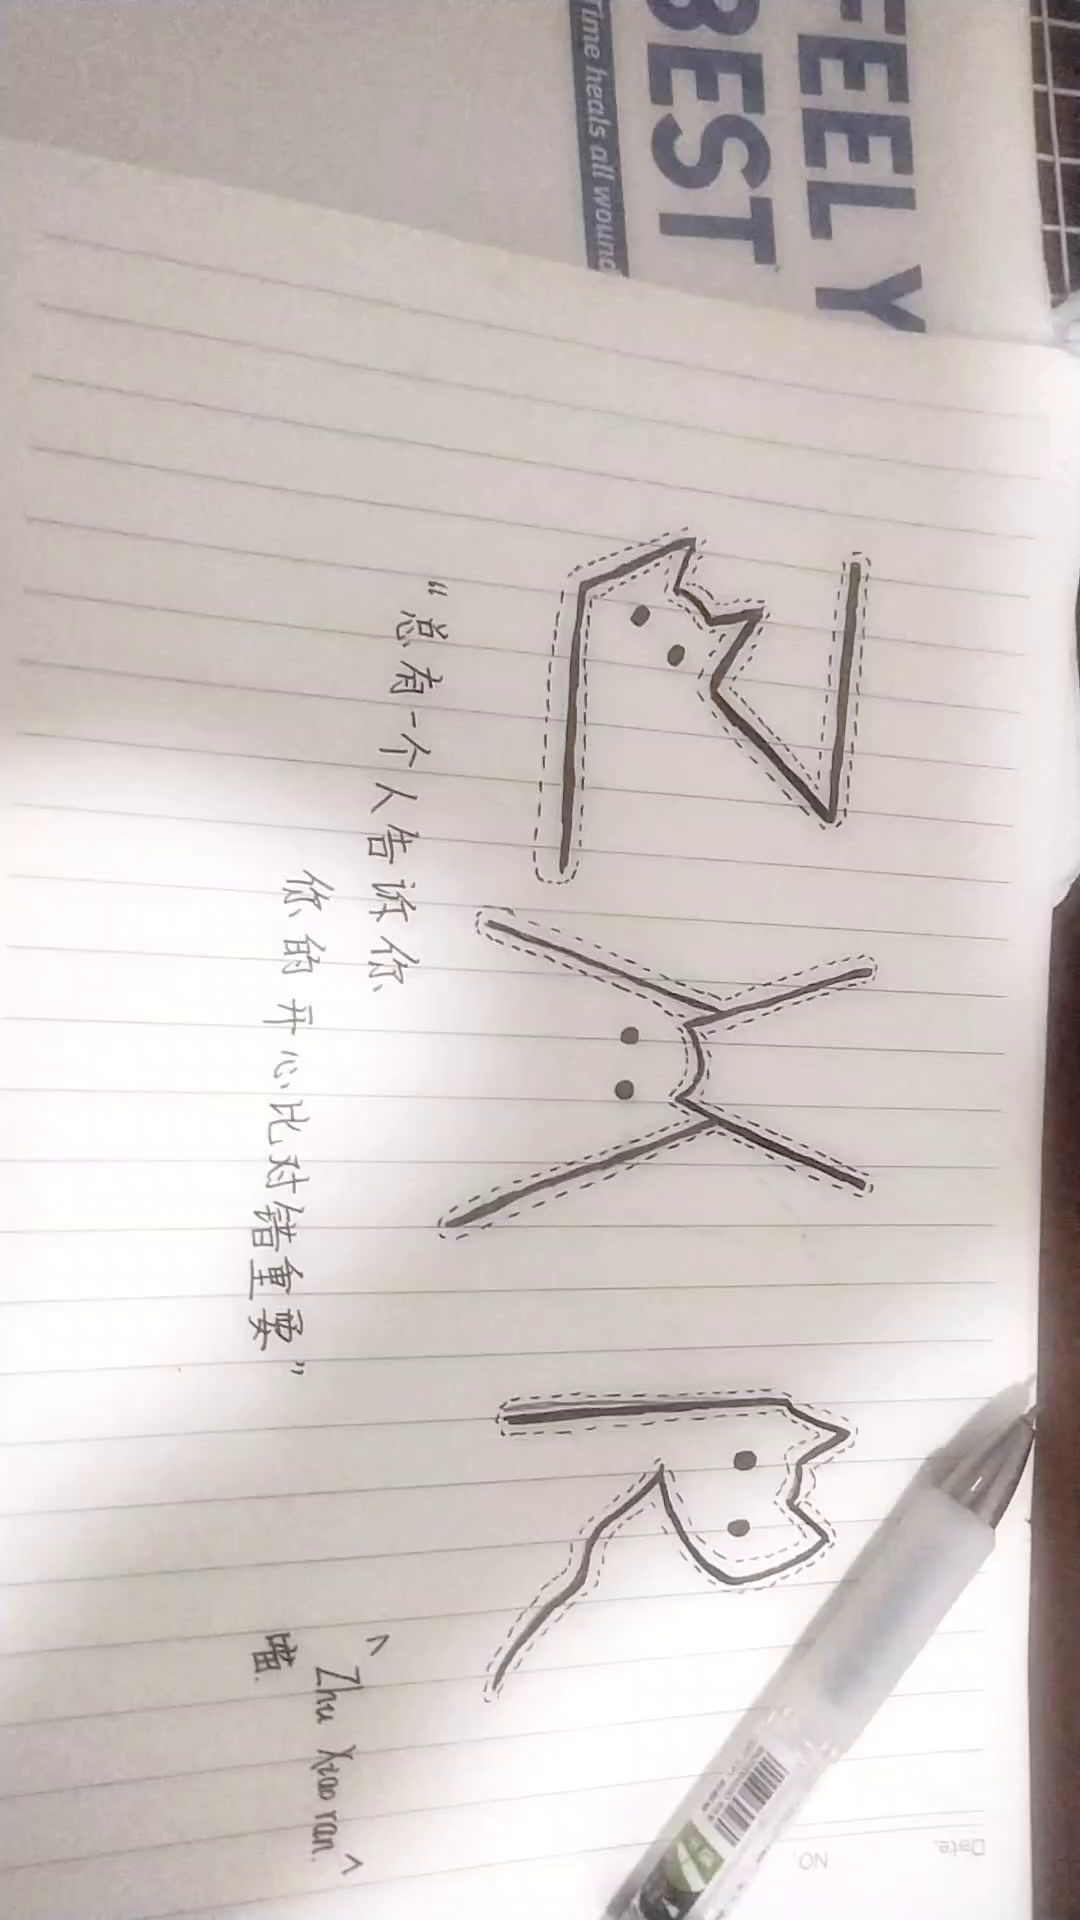 FEEL Y
BEST
Time heals all wound
ZXR
“总有一个人告诉你
你的开心比对错重要”
^ Zhu Xiao ran. ^
喵.
NO.
Date.